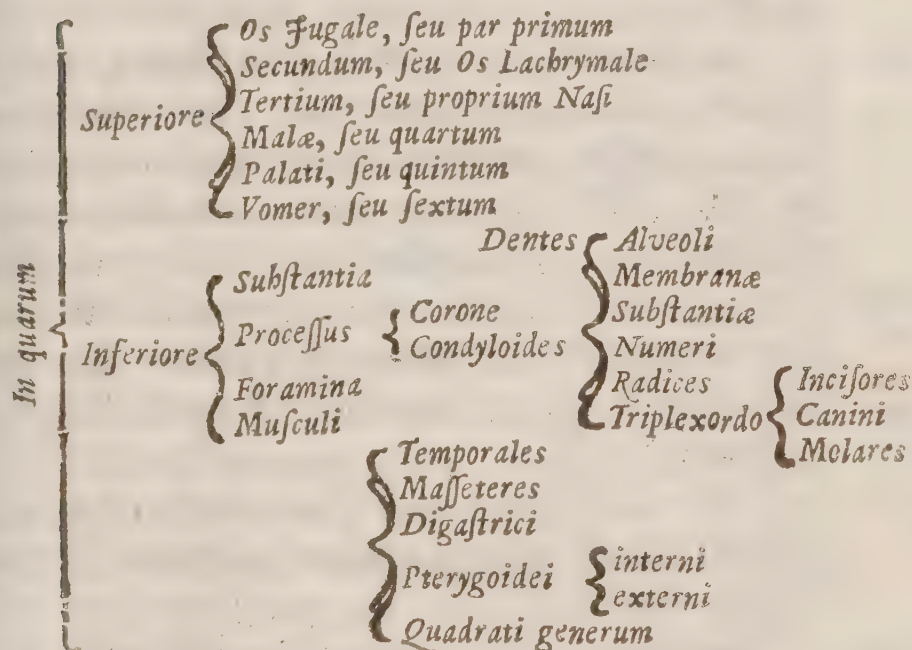 In quarum
Superiore
Os Jugale, ſeu par primum
Secundum, ſeu Os Lachrymale
Tertium, ſeu proprium Naſi
Malæ, ſeu quartum
Palati, ſeu quintum
Vomer, ſeu ſextum
Inferiore
Subſtantia
Proceſſus
Corone
Condyloides
Foramina
Muſculi
Dentes
Alveoli
Membranæ
Subſtantiæ
Numeri
Radices
Triplexordo
Inciſores
Canini
Molares
Temporales
Maſſeteres
Digaſtrici
Pterygoidei
interni
externi
Quadrati generum